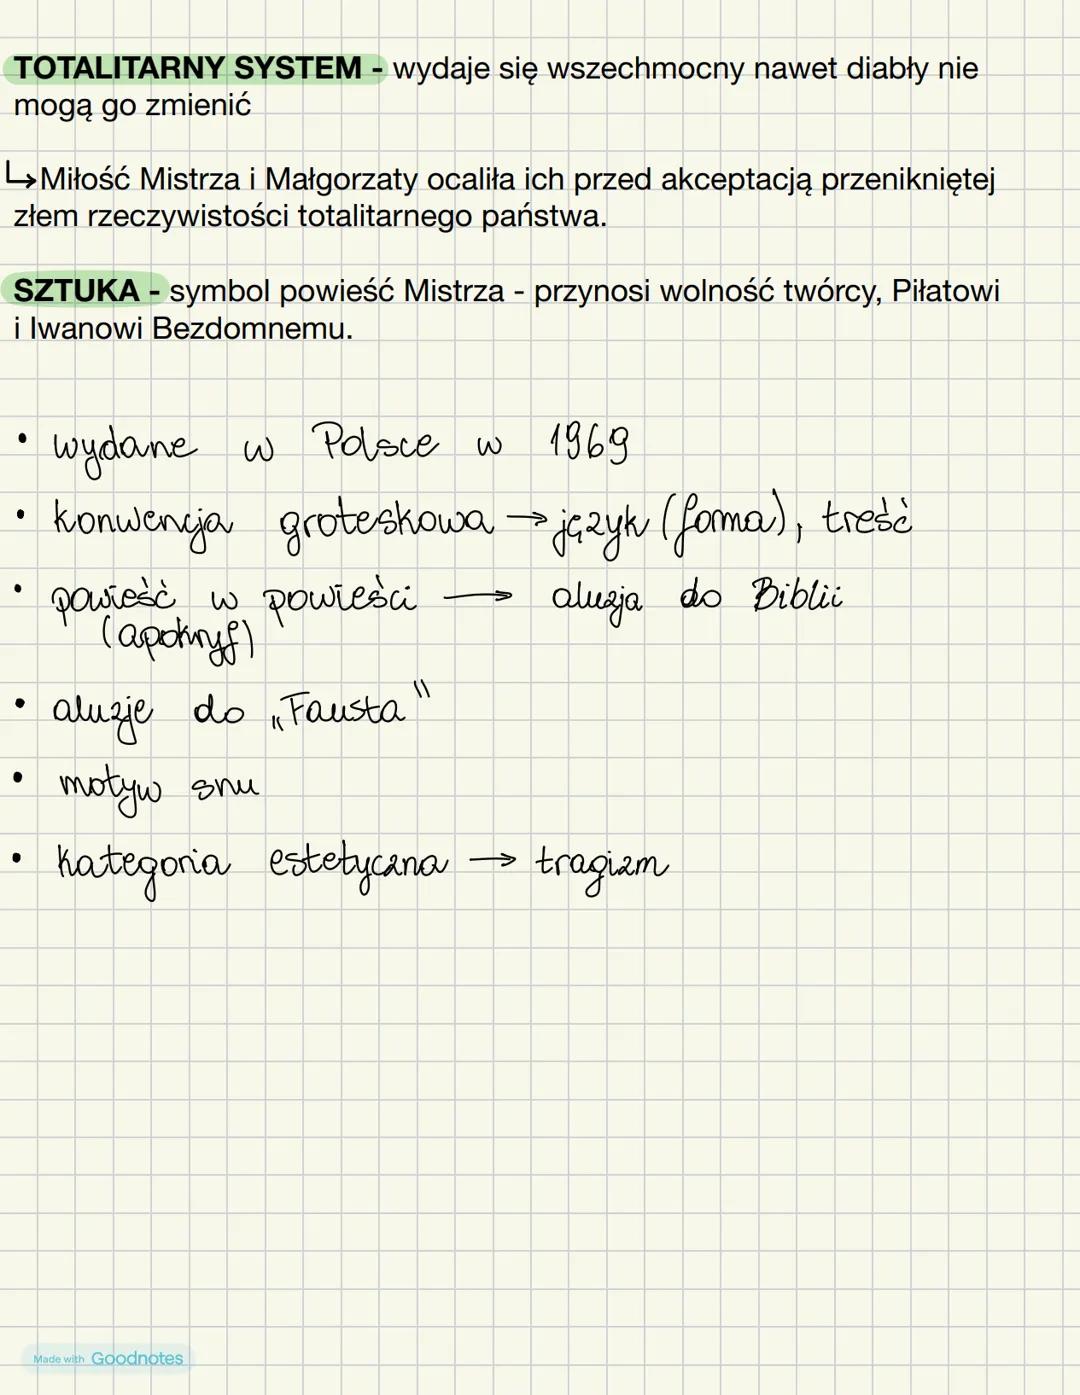 TOTALITARNY SYSTEM - wydaje się wszechmocny nawet diabły nie
mogą go zmienić
↳Miłość Mistrza i Małgorzaty ocaliła ich przed akceptacją przenikniętej
złem rzeczywistości totalitarnego państwa.
SZTUKA - symbol powieść Mistrza - przynosi wolność twórcy, Piłatowi
i Iwanowi Bezdomnemu.
• wydane w Polsce w 1969
• konwencja groteskowa → język (forma), treść
• powieść w powieści → aluzja do Biblii
(apokryf)
• aluzje do „Fausta"
• motyw snu
• kategoria estetyczna → tragizm
Made with Goodnotes